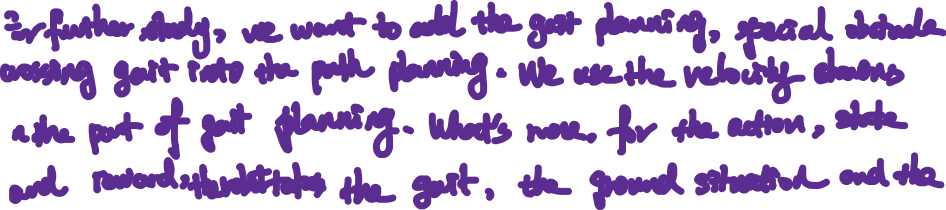 For further study, we want to add the gait planning, special obstacle
crossing gait into the path planning. We use the velocity
the part of gait planning. What's more, for the action, state
and reward, the gait, the ground situation and the